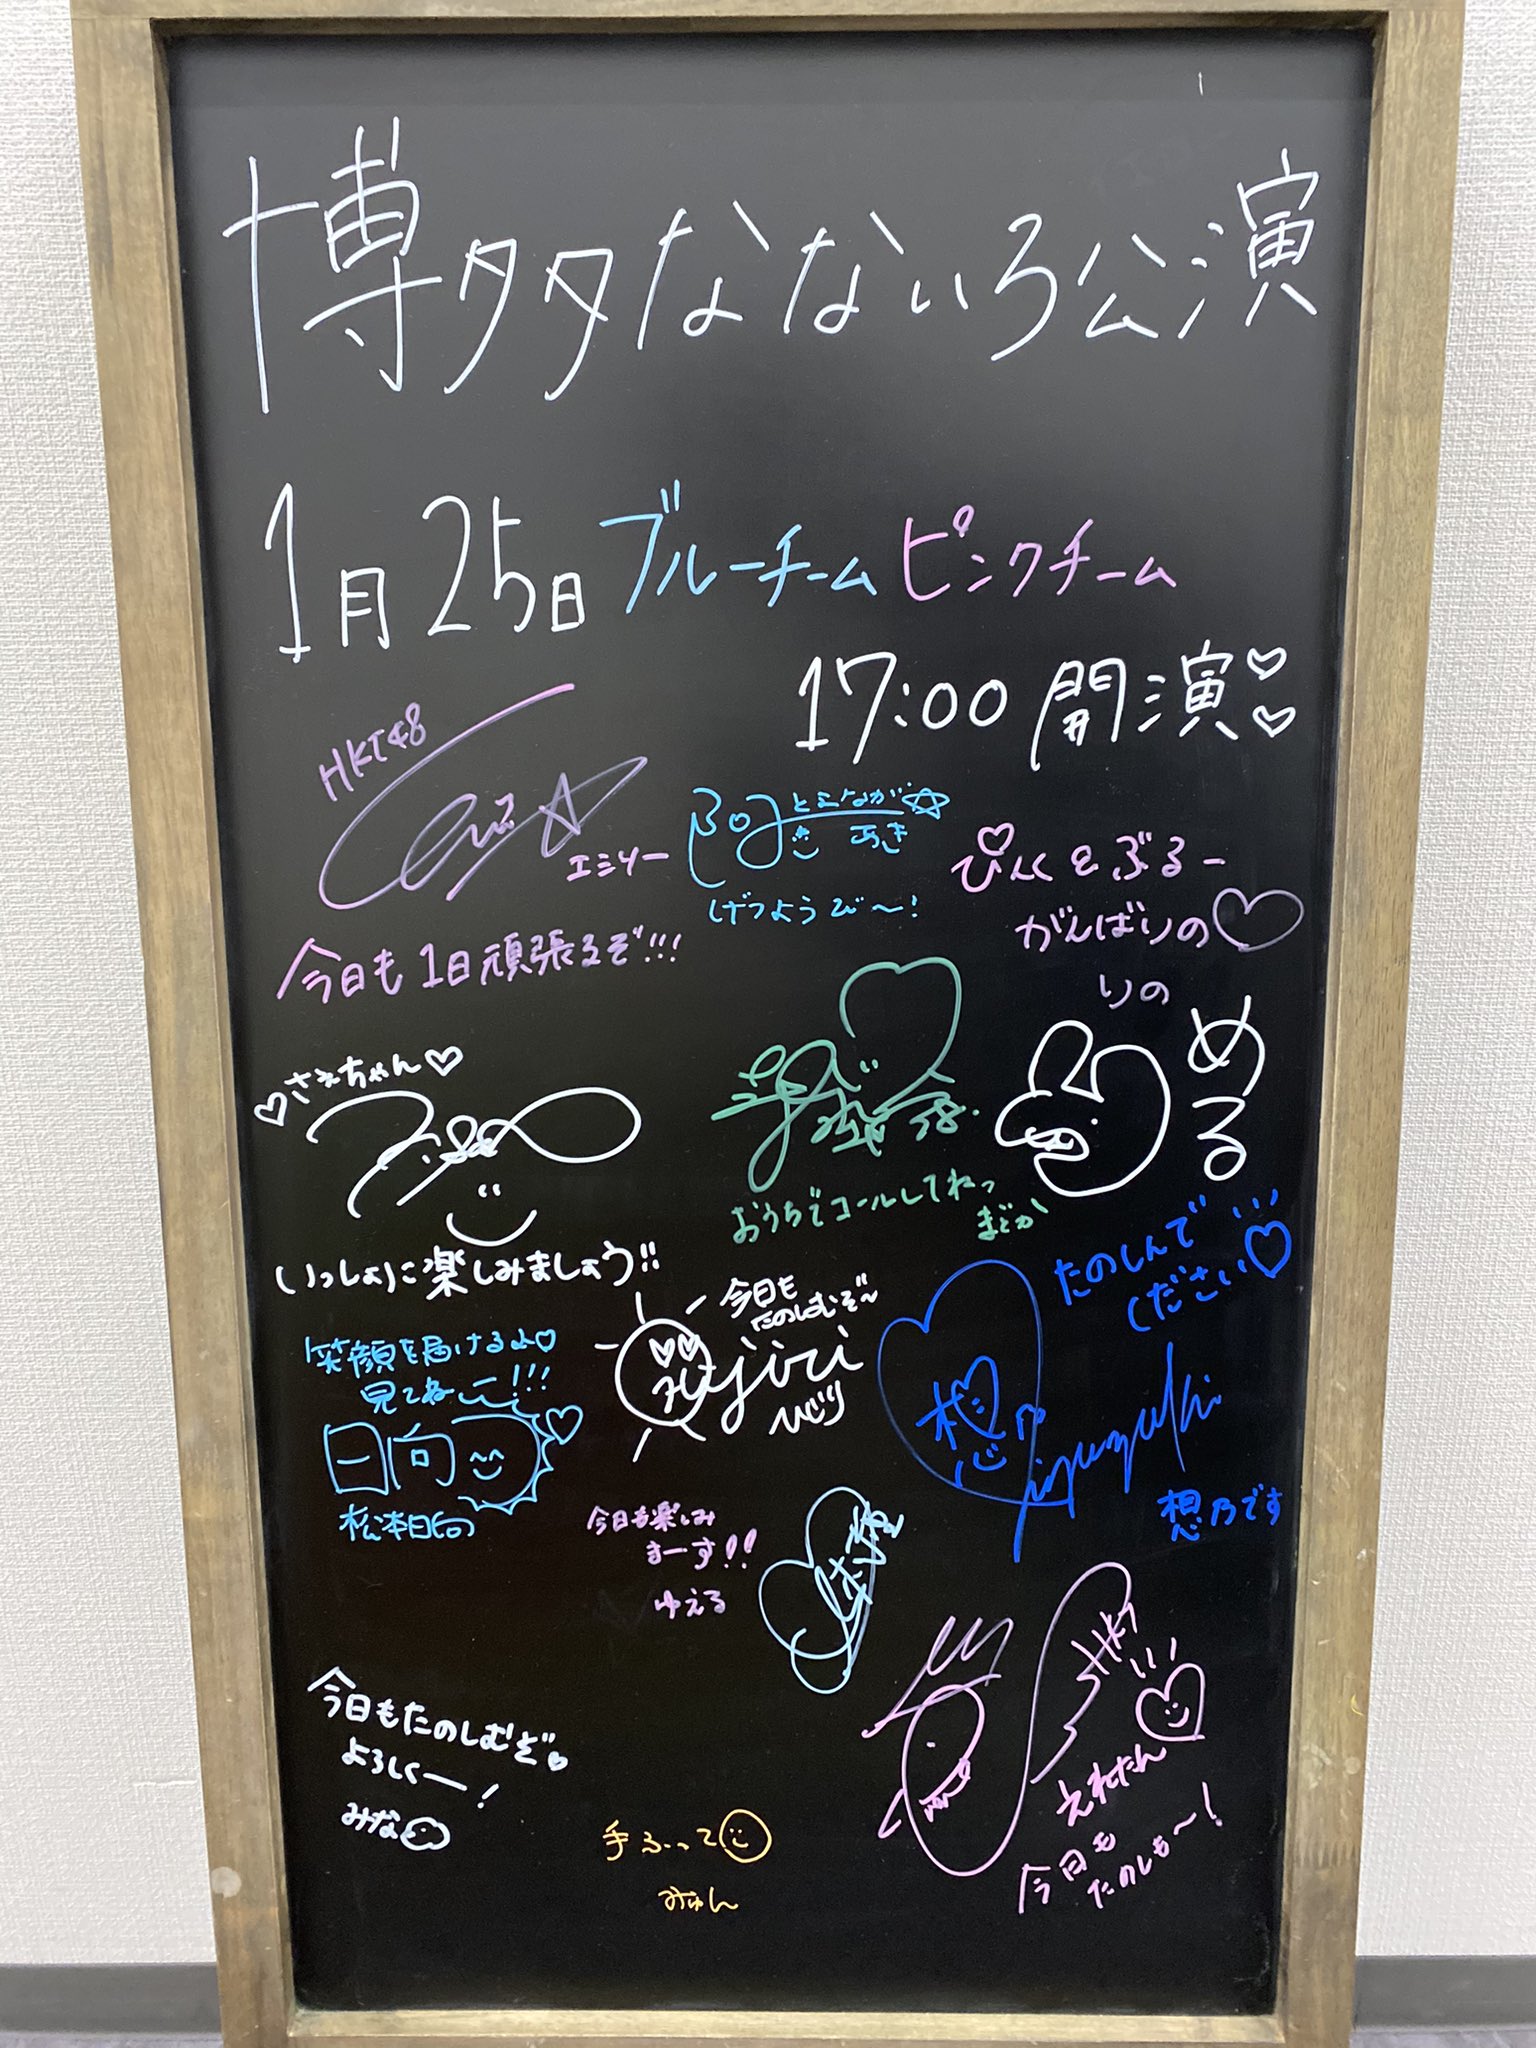 博多なないろ公演
1月25日 ブルーチーム ピンクチーム
17:00 開演
HKT48
エミリー
今日も1日頑張るぞ!!!
とみなが
あき
げつようび〜!
ぴんく&ぶるー
がんばりの
りの
さえちゃん
いっしょに楽しみましょう!!
おうちでコールしてねっ
まどか
める
笑顔を届けるよ
見てねー!!!
日向
松本日向
今日も
たのしむぞ〜
jiri
ひじり
たのしんで
ください
想
想乃です
今日も楽しみ
まーす!!
ゆえる
今日もたのしむぞ
よろしくー!
みなと
手ふって
みゅん
えれたん
今日も
たのしも〜!